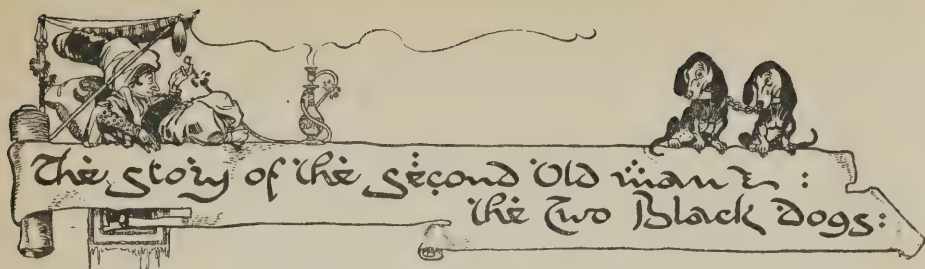 The story of the second Old man & :
the Two Black Dogs: